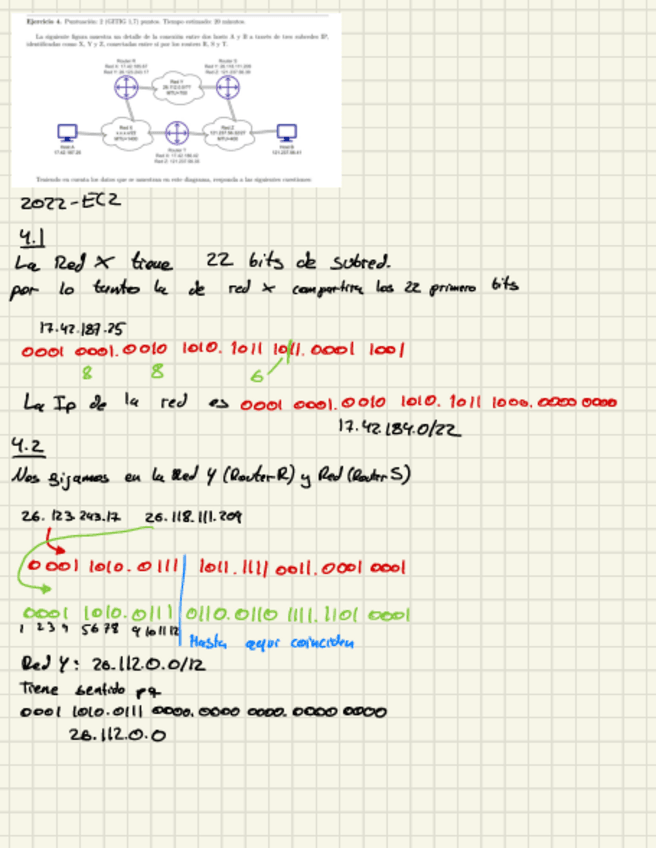 Ejercicio 4. Puntuación: 2 (GITIG 1,7) puntos. Tiempo estimado: 20 minutos.
La siguiente figura muestra un detalle de la conexión entre dos hosts A y B a través de tres subredes IP,
identificadas como X, Y y Z, conectadas entre sí por los routers R, S y T.
Router R
Router S
Red Y
Red X
Red Z
Router T
Host A
Host B
Teniendo en cuenta los datos que se muestran en este diagrama, responda a las siguientes cuestiones:
2022-EC2
4.1
La Red X tiene 22 bits de subred.
por lo tanto la de red x compartira los 22 primero bits
17.42.187.25
0001 0001.0010 1010.1011 1011.0001 1001
8 8 6
La Ip de la red es 0001 0001.0010 1010.1011 1000.0000 0000
17.42.184.0/22
4.2
Nos fijamos en la Red Y (Router R) y Red (Router S)
26.123.243.17 26.118.111.209
0001 1010.0111 1011.1111 0011.0001 0001
0001 1010.0111 0110.0110 1111.1101 0001
1 2 3 4 5 6 7 8 9 10 11 12 Hasta aqui coinciden
Red Y: 26.112.0.0/12
Tiene sentido pq
0001 1010.0111 0000.0000 0000.0000 0000
26.112.0.0